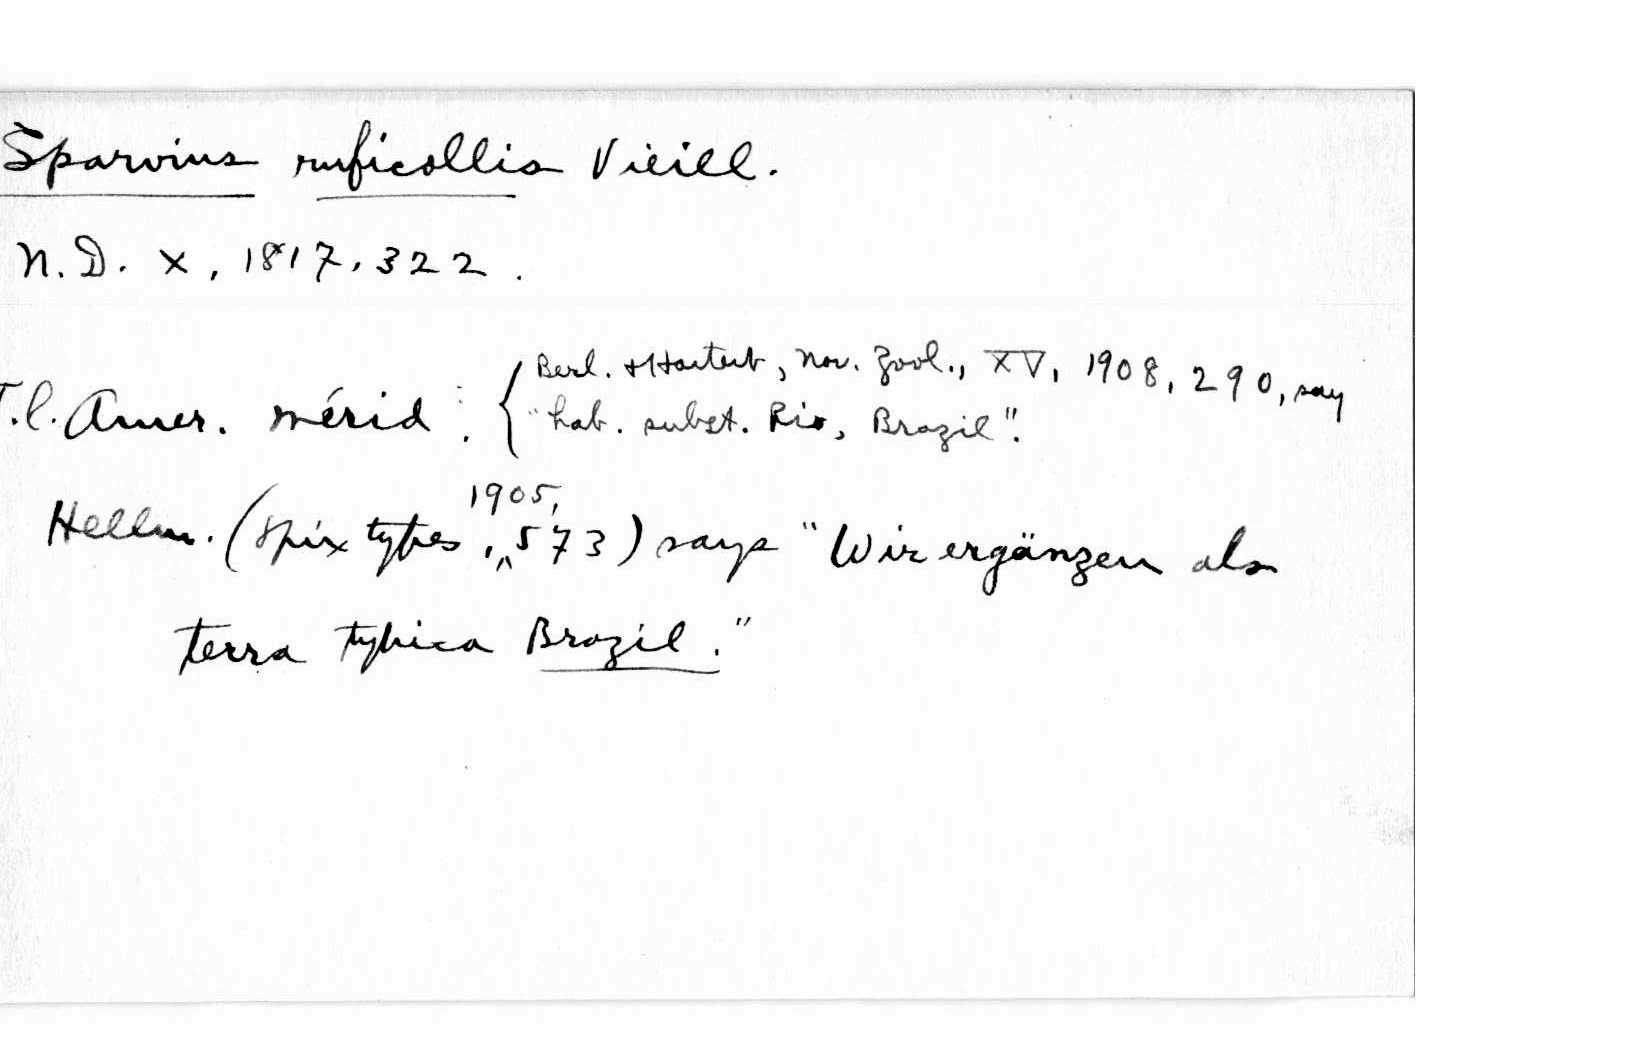 Sparvius ruficollis Vieill.
N.D. X, 1817, 322.
Berl. + Hartert, Nov. Zool., XV, 1908, 290, say
T.l. Amer. mérid: { "hab. subst. Rio, Brazil".
1905,
Hellm. (Spix types, 573) says "Wir ergänzen als
terra typica Brazil."